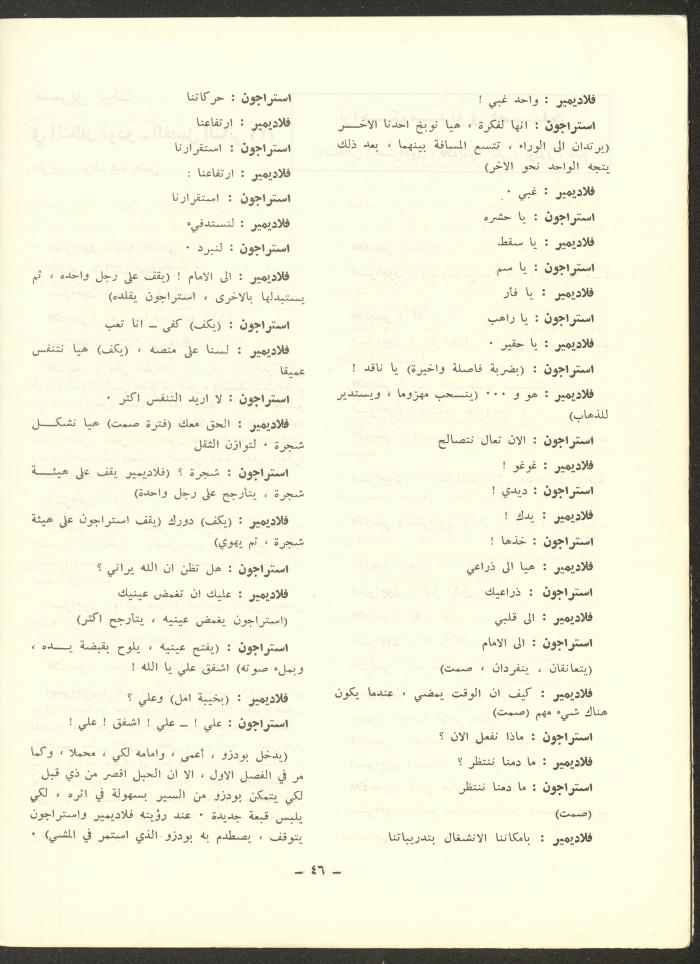 فلاديمير : واحد غبي !
استراجون : انها لفكرة ، هيا نوبخ احدنا الاخـــر
(يرتدان الى الوراء ، تتسع المسافة بينهما ، بعد ذلك
يتجه الواحد نحو الاخر)
فلاديمير : غبي ٠
استراجون : يا حشره
فلاديمير : يا سقط
استراجون : يا سم
فلاديمير : يا فأر
استراجون : يا راهب
فلاديمير : يا حقير ٠
استراجون : (بضربة فاصلة واخيرة) يا ناقد !
فلاديمير : هو و ٠٠٠ (ينسحب مهزوما ، ويستدير
للذهاب)
استراجون : الان تعال نتصالح
فلاديمير : غوغو !
استراجون : ديدي !
فلاديمير : يدك !
استراجون : خذها !
فلاديمير : هيا الى ذراعي
استراجون : ذراعيك
فلاديمير : الى قلبي
استراجون : الى الامام
(يتعانقان ، ينفردان ، صمت)
فلاديمير : كيف ان الوقت يمضي ، عندما يكون
هناك شيء مهم (صمت)
استراجون : ماذا نفعل الان ؟
فلاديمير : ما دمنا ننتظر ؟
استراجون : ما دمنا ننتظر
(صمت)
فلاديمير : بامكاننا الانشغال بتدريباتنا
استراجون : حركاتنا
فلاديمير : ارتفاعنا
استراجون : استقرارنا
فلاديمير : ارتفاعنا :
استراجون : استقرارنا
فلاديمير : لنستدفيء
استراجون : لنبرد ٠
فلاديمير : الى الامام ! (يقف على رجل واحده ، ثم
يستبدلها بالاخرى ، استراجون يقلده)
استراجون : (يكف) كفى ــ انا تعب
فلاديمير : لسنا على منصه ، (يكف) هيا نتنفس
عميقا
استراجون : لا اريد التنفس اكثر ٠
فلاديمير : الحق معك (فترة صمت) هيا نشكـــل
شجرة ٠ لتوازن الثقل
استراجون : شجرة ؟ (فلاديمير يقف على هيئـــة
شجرة ، يتأرجح على رجل واحدة)
فلاديمير : (يكف) دورك (يقف استراجون على هيئة
شجرة ، ثم يهوي)
استراجون : هل تظن ان الله يراني ؟
فلاديمير : عليك ان تغمض عينيك
(استراجون يغمض عينيه ، يتأرجح اكثر)
استراجون : (يفتح عينيه ، يلوح بقبضة يـــده ،
وبملء صوته) اشفق علي يا الله !
فلاديمير : (بخيبة امل) وعلي ؟
استراجون : علي ! ــ علي ! اشفق ! علي !
(يدخل بودزو ، أعمى ، وامامه لكي ، محملا ، وكما
مر في الفصل الاول ، الا ان الحبل اقصر من ذي قبل
لكي يتمكن بودزو من السير بسهولة في اثره ، لكي
يلبس قبعة جديدة ٠ عند رؤيته فلاديمير واستراجون
يتوقف ، يصطدم به بودزو الذي استمر في المشي) ٠
ــ ٤٦ ــ